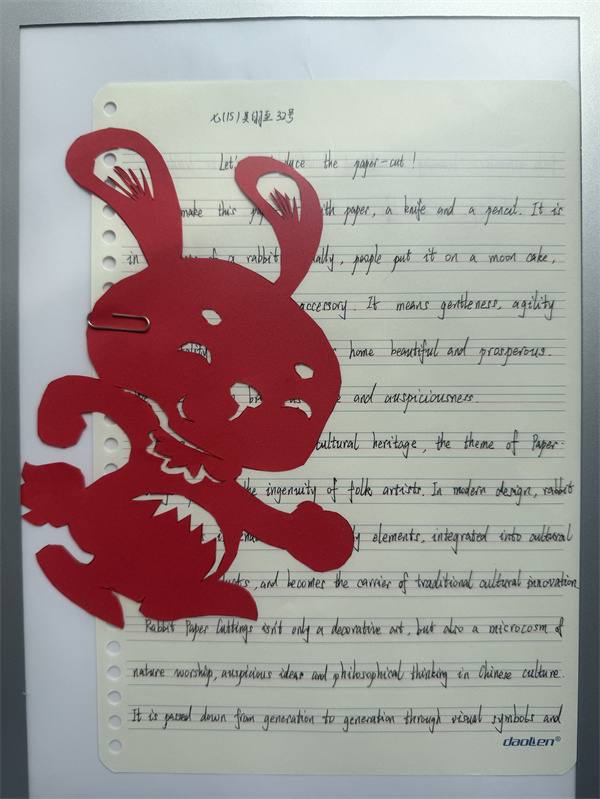 七(15) 吴 32号
Let's duce the paper-cut!
make this pap ith paper, a knife and a pencil. It is
in of a rabbit ually, people put it on a moon cake,
accessory. It means gentleness, agility
ality home beautiful and prosperous.
the bra e and auspiciousness.
cultural heritage, the theme of Paper-
the ingenuity of folk artists. In modern design, rabbit
y elements, integrated into cultural
ducts, and becomes the carrier of traditional cultural innovation
Rabbit Paper Cuttings isn't only a decorative art, but also a microcosm of
nature worship, auspicious ideas and philosophical thinking in Chinese culture.
It is passed down from generation to generation through visual symbols and
daolien®